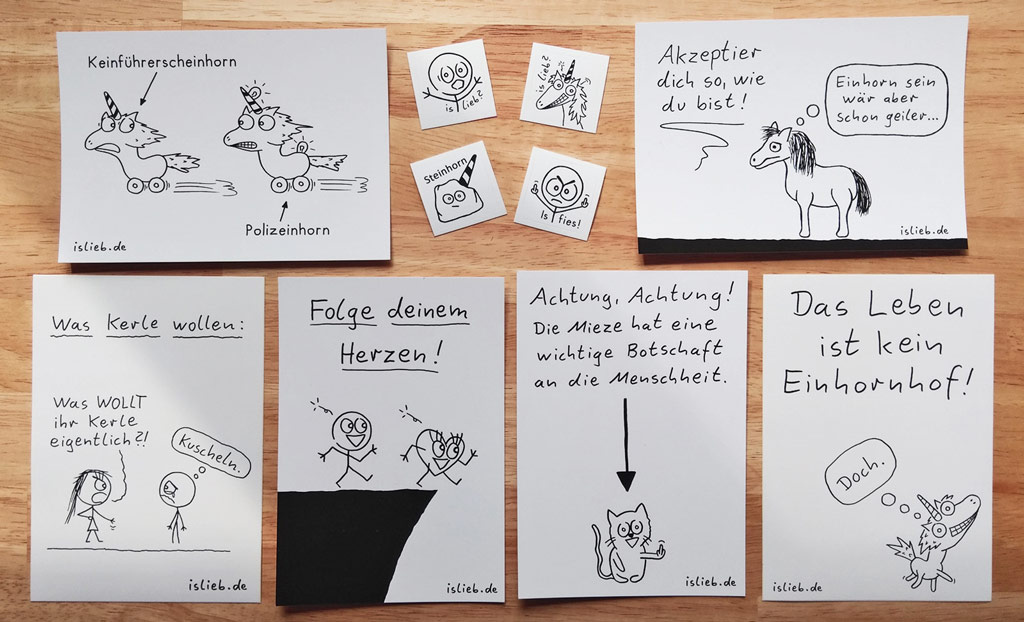 Keinführerscheinhorn
Polizeinhorn
islieb.de
is lieb?
is lieb?
Steinhorn
Is fies!
Akzeptier
dich so, wie
du bist!
Einhorn sein
wär aber
schon geiler...
islieb.de
Was Kerle wollen:
Was WOLLT
ihr Kerle
eigentlich?!
Kuscheln.
islieb.de
Folge deinem
Herzen!
islieb.de
Achtung, Achtung!
Die Mieze hat eine
wichtige Botschaft
an die Menschheit.
islieb.de
Das Leben
ist kein
Einhornhof!
Doch.
islieb.de